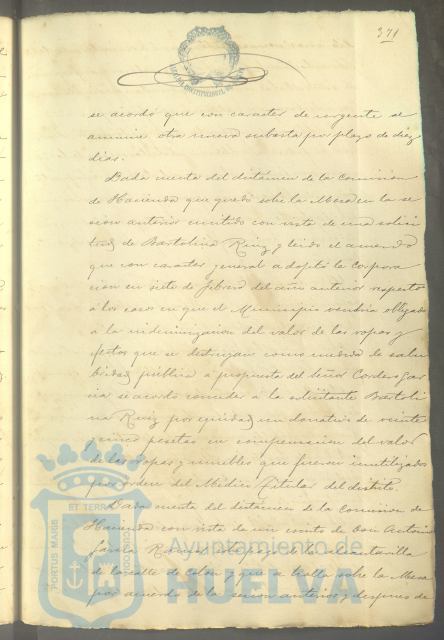 371
se acordó que con caracter de urgente se
anuncie otra nueva subasta por plazo de diez
dias.
Dada cuenta del dictámen de la Comision
de Hacienda que quedó sobre la Mesa en la se
sion anterior emitido con vista de una solici
tud de Bartolina Ruiz y leido el acuerdo
que con caracter general adoptó la Corpora
cion en siete de febrero del año anterior respecto
á los casos en que el Municipio vendria obligado
á la indemnizacion del valor de las ropas y
efectos que se destruyan como medida de salu
bridad pública á propuesta del Señor Cordero Gar
cia se acordó conceder á la solicitante Bartoli
na Ruiz por equidad un donativo de veinte
y cinco pesetas en compensacion del valor
de las ropas y muebles que fueron inutilizados
por orden del Médico titular del distrito.
Dada cuenta del dictámen de la Comision de
Hacienda con vista de un escrito de Don Antonio
García Ramos sobre pago de la alcantarilla
de la calle de Colon y que se halla sobre la Mesa
por acuerdo de la sesion anterior y despues de
PORTUS MARIS ET TERRAE CUSTODIA
Ayuntamiento de
HUELVA